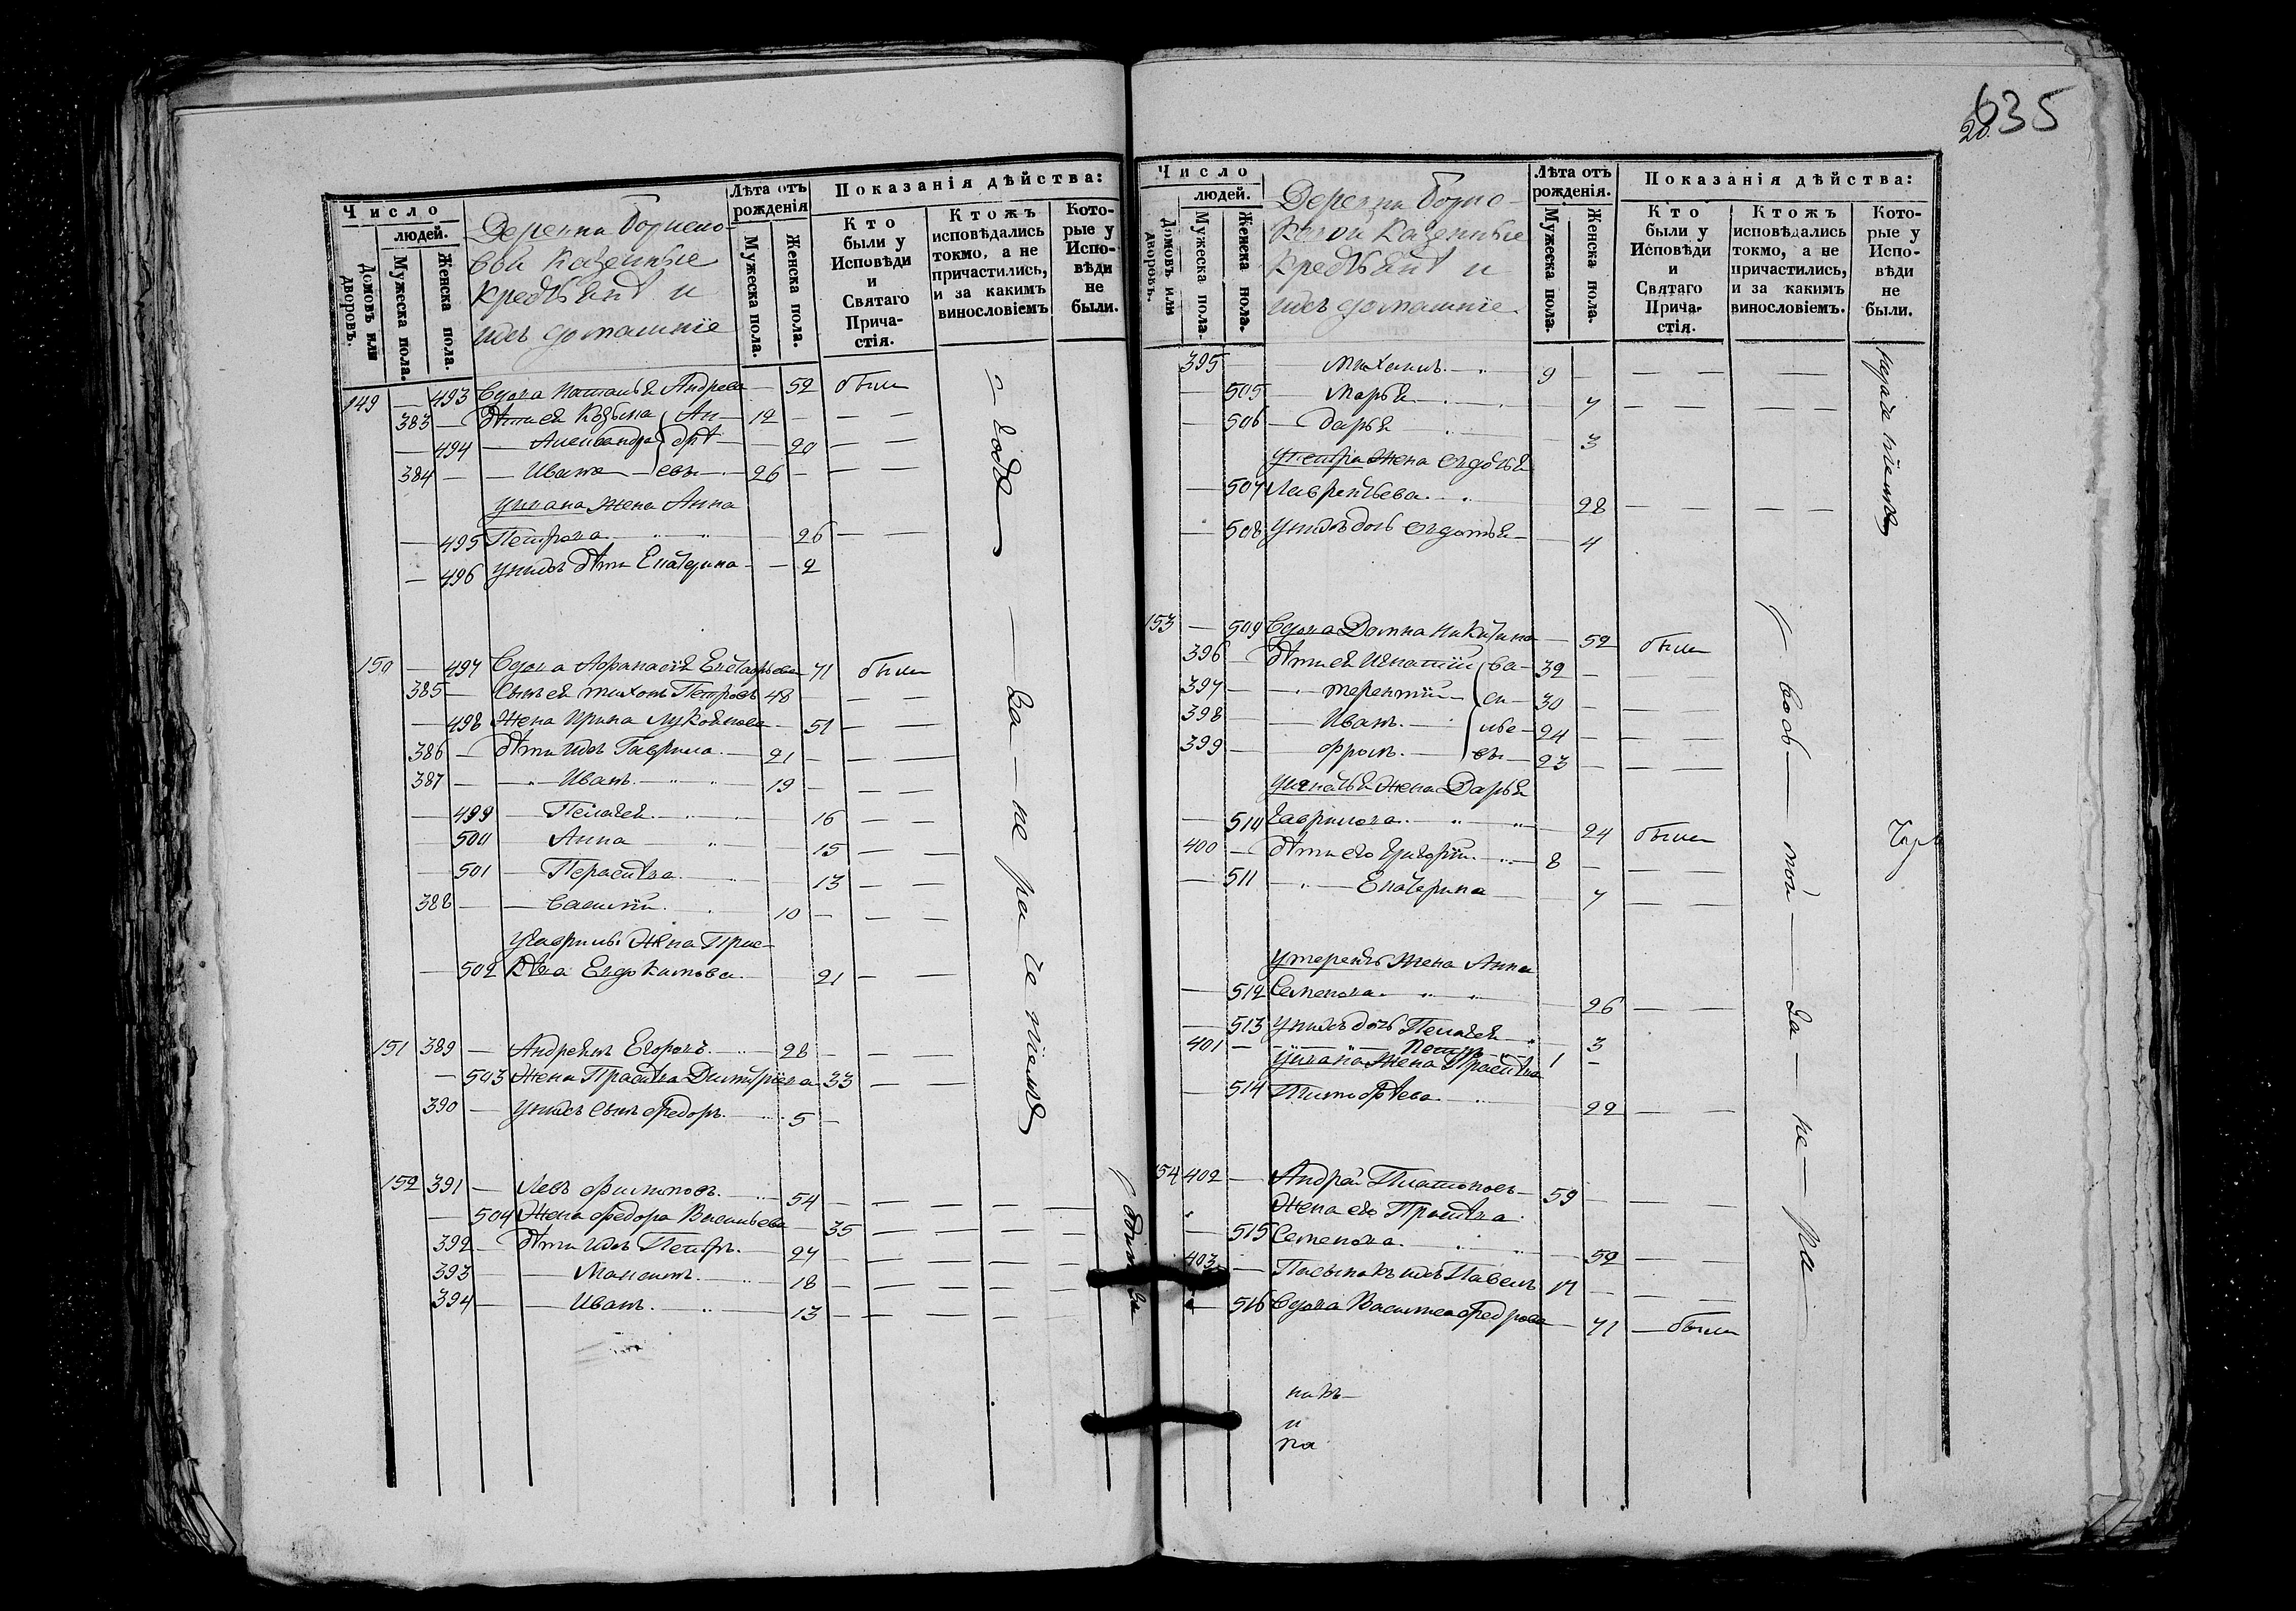 635
20.
Число
людей.
Домовъ или дворовъ.
Мужеска пола.
Женска пола.
Деревни
Казенные
и
ихъ домашніе
Лѣта отъ рожденія
Мужеска пола.
Женска пола.
Показанія дѣйства:
Кто были у Исповѣди и Святаго Причастія.
Ктожъ исповѣдались токмо, а не причастились, и за какимъ винословіемъ
Которые у Исповѣди не были.
149 — 493 Вдова Наталья Андреева — 52 были
383 — Дѣти ея Козьма Ан- 12
— 494 — Александра дрѣ- 20
384 — — Иванъ евы 26
Ивана жена Анна
— 495 Петрова — 26
— 496 У нихъ дѣти Екатерина — 2
150 — 497 Вдова 71 были
385 — Сынъ ея Тихонъ Петровъ 48
— 498 Жена Ирина 51
386 — Дѣти ихъ Гаврила 21
387 — — Иванъ 19
— 499 — Пелагея 16
500 Анна 15
— 501 — Параскева 13
388 — — Василій 10
У Гаврилы жена Прас-
— 502 кѣва Евдокимова 21
151 389 — Андреянъ Егоровъ 28
— 503 Жена Праскѣва Дмитріева 33
390 — У нихъ сынъ Федоръ 5
152 391 — Левъ Филиповъ 54
— 504 Жена Федора Васильева 35
392 — Дѣти ихъ Петръ 27
393 — Максимъ 18
394 — — Иванъ 13
не ра че ніемъ
Число
людей.
Домовъ или дворовъ.
Мужеска пола.
Женска пола.
Деревни
Казенные
и
ихъ домашніе
Лѣта отъ рожденія.
Мужеска пола.
Женска пола.
Показанія дѣйства:
Кто были у Исповѣди и Святаго Причастія.
Ктожъ исповѣдались токмо, а не причастились, и за какимъ винословіемъ.
Которые у Исповѣди не были.
395 Михаилъ 9
505 — Марья 7
506 — Дарья 3
У Петра жена Евдокія
— 507 Лаврентьева 28
— 508 У нихъ дочь Евдокія 4
153 — 509 Вдова Домна Никитина — 52 были
396 — Дѣти ея Игнатій Ва- 39
397 — Терентій си- 30
398 — Иванъ лье- 24
399 — Фролъ вы 23
У Игнатья жена Дарья
— 510 Гаврилова 24 были
400 — Дѣти его Григорій 8
— 511 — Екатерина 7
У Терентья жена Анна
— 512 Семенова 26
— 513 У нихъ дочь Пелагея 3
401 — Петръ 1
У Ивана жена Праскѣва
— 514 Тимофѣева 22
154 402 — Андрей Платоновъ 59
Жена его Праскѣва
— 515 Семенова 52
403 — Пасынокъ ихъ Павелъ 17
— 516 Вдова Василиса Федорова 71 — были